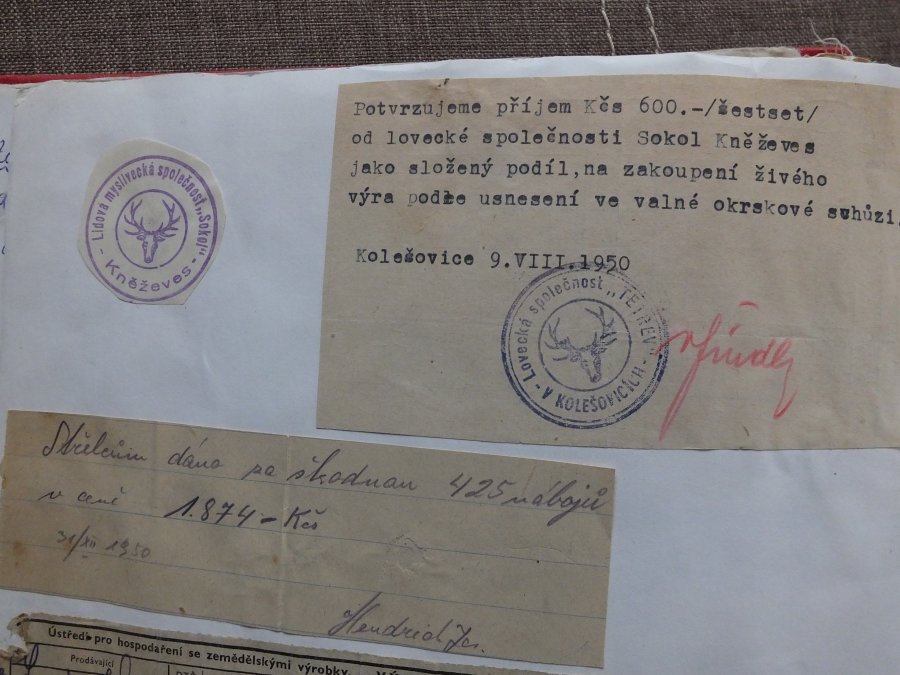 Potvrzujeme příjem Kčs 600.-/šestset/
od lovecké společnosti Sokol Kněževes
jako složený podíl,na zakoupení živého
výra podle usnesení ve valné okrskové suhůzi.
Kolešovice 9.VIII.1950
Lovecká společnost „TETŘEV“
- V KOLEŠOVICÍCH -
Lidová myslivecká společnosť „Sokol“
- Kněževes -
Střelcům dáno za škodnau 425 nábojů
v ceně 1.874 - Kčs
31/XII 1950
Hendrich Jos.
Ústředí pro hospodaření se zemědělskými výrobky.
Prodávající